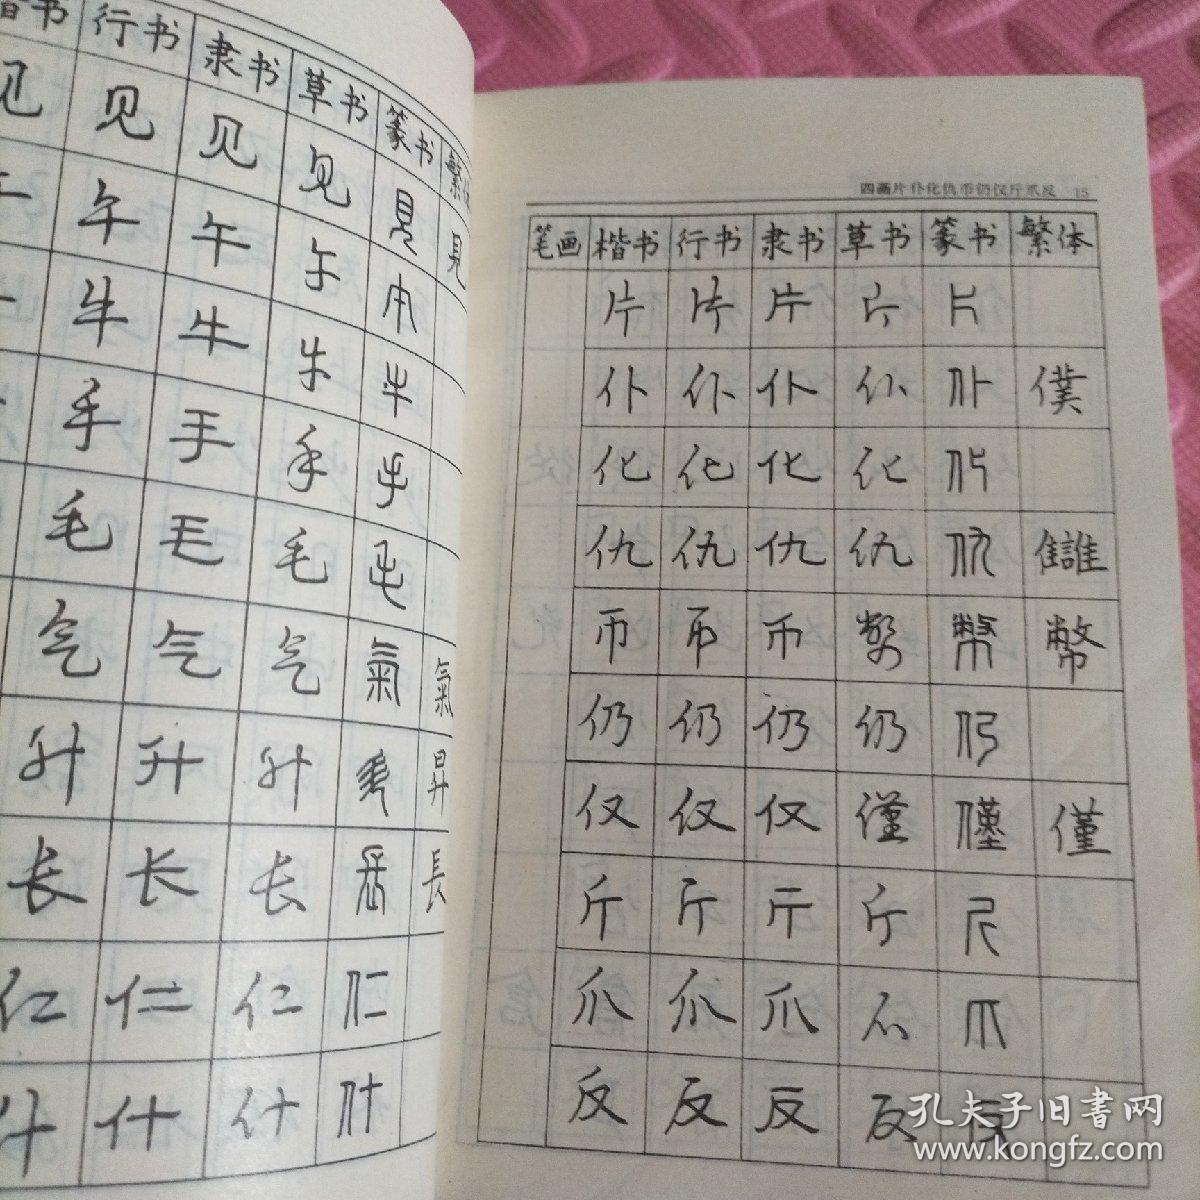 楷书 行书 隶书 草书 篆书 繁体
见 见 见 见 見 見
午 午 午 午
牛 牛 牛 牛
手 手 手 手
毛 毛 毛 毛
气 气 气 氣 氣
升 升 升 升 昇
长 长 长 長 長
仁 仁 仁 仁
什 什 什 什
四画片仆化仇币仍仅斤爪反 15
笔画 楷书 行书 隶书 草书 篆书 繁体
片 片 片 片 片
仆 仆 仆 仆 仆 僕
化 化 化 化 化
仇 仇 仇 仇 仇 讎
币 币 币 幣 幣 幣
仍 仍 仍 仍 仍
仅 仅 仅 僅 僅 僅
斤 斤 斤 斤 斤
爪 爪 爪 爪 爪
反 反 反 反 反
孔夫子旧書网
www.kongfz.com